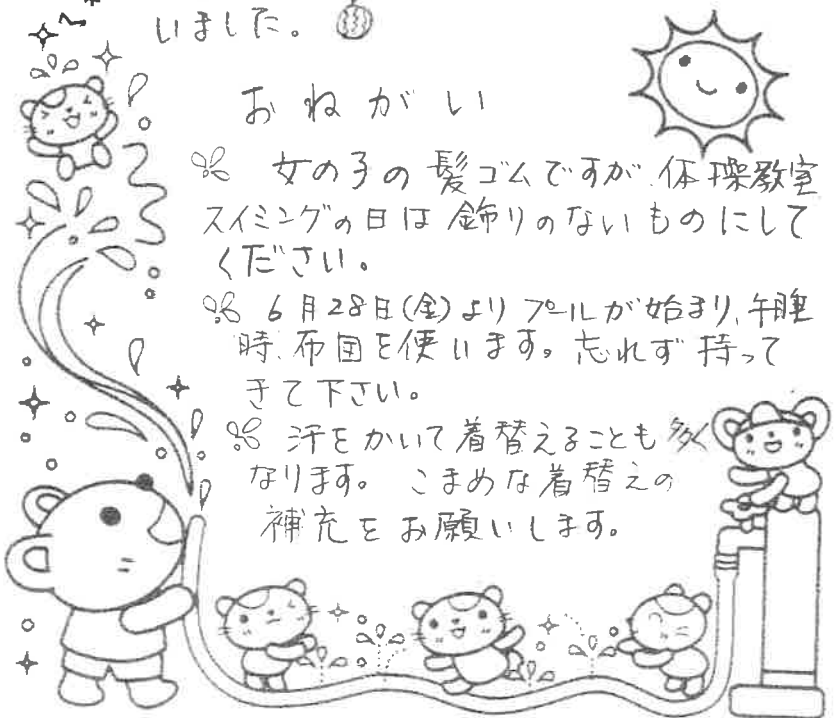 いました。
おねがい
女の子の髪ゴムですが、体操教室
スイミングの日は飾りのないものにして
ください。
6月28日(金)よりプールが始まり、午睡
時、布団を使います。忘れず持って
きて下さい。
汗をかいて着替えることも多く
なります。こまめな着替えの
補充をお願いします。